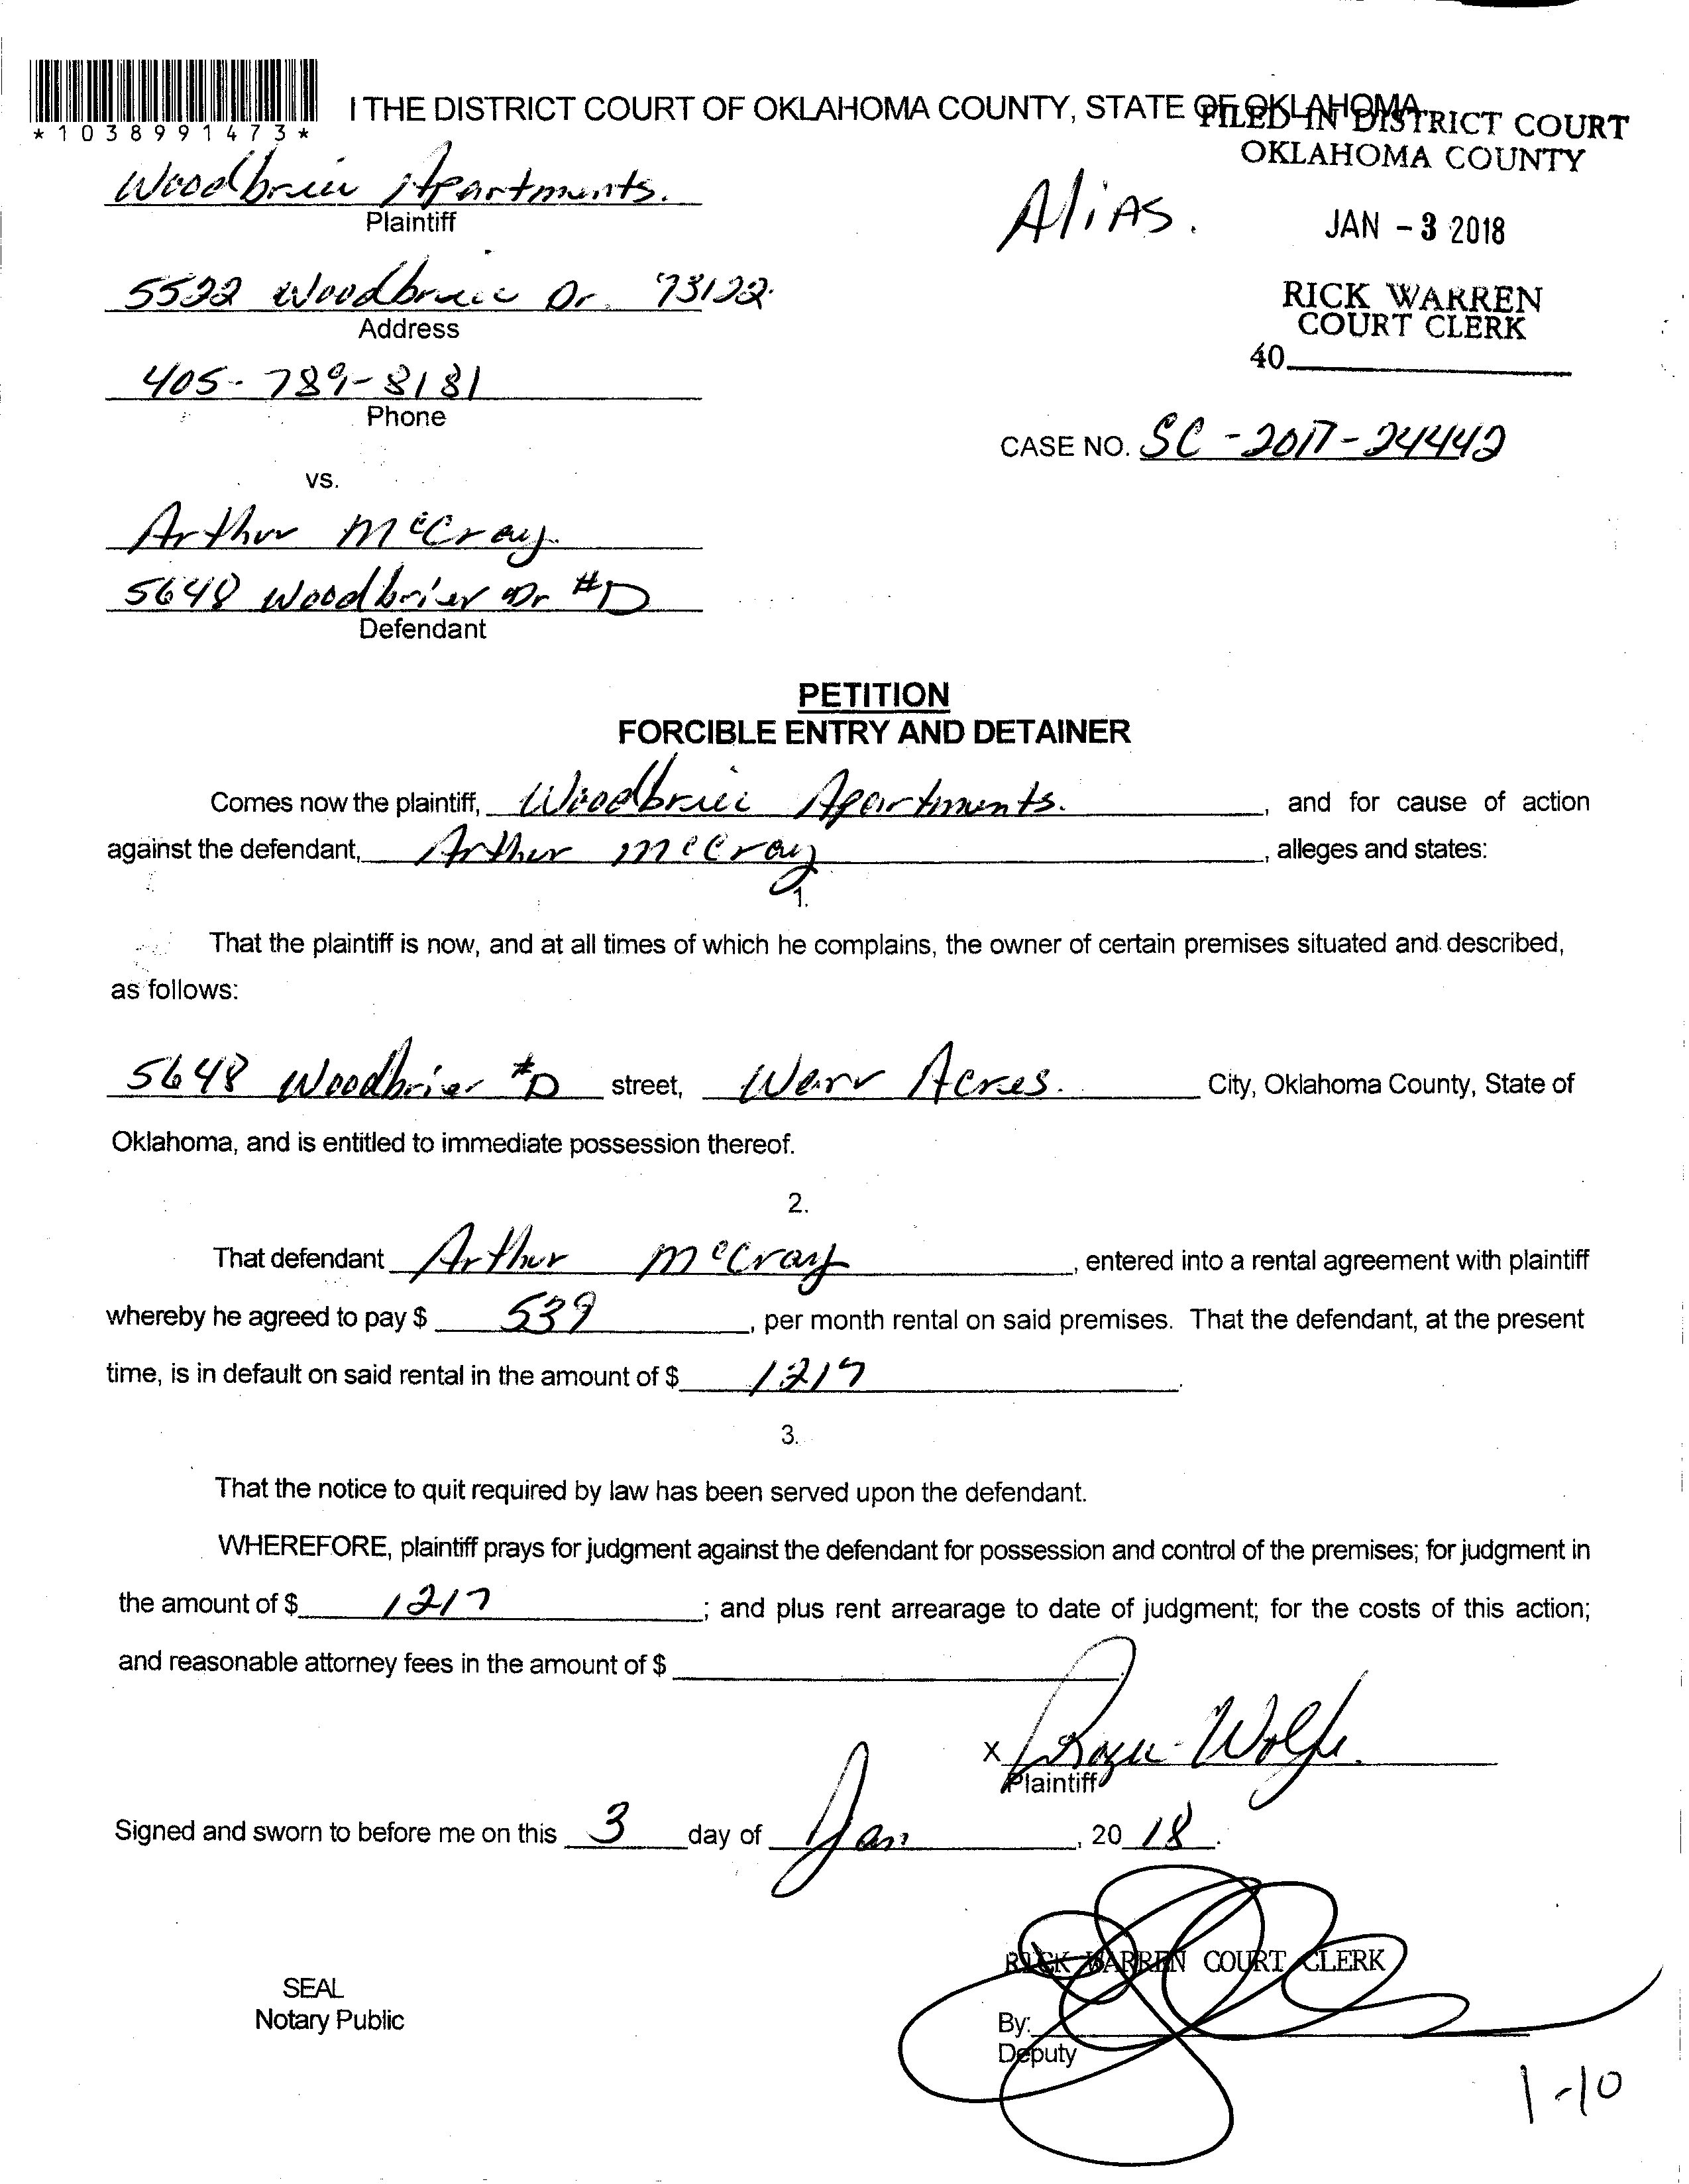 I THE DISTRICT COURT OF OKLAHOMA COUNTY, STATE OF OKLAHOMA
FILED IN DISTRICT COURT
OKLAHOMA COUNTY
*1038991473*
Woodbrier Apartments.
Plaintiff
Alias.
JAN - 3 2018
5522 Woodbrier Dr. 73122.
Address
RICK WARREN
COURT CLERK
40
405-789-8181
Phone
CASE NO. SC-2017-24442
vs.
Arthur McCray
5648 Woodbrier Dr #D
Defendant
PETITION
FORCIBLE ENTRY AND DETAINER
Comes now the plaintiff, Woodbrier Apartments. , and for cause of action
against the defendant, Arthur McCray , alleges and states:
1.
That the plaintiff is now, and at all times of which he complains, the owner of certain premises situated and described,
as follows:
5648 Woodbrier #D street, Warr Acres. City, Oklahoma County, State of
Oklahoma, and is entitled to immediate possession thereof.
2.
That defendant Arthur McCray , entered into a rental agreement with plaintiff
whereby he agreed to pay $ 539 , per month rental on said premises. That the defendant, at the present
time, is in default on said rental in the amount of $ 1217 .
3.
That the notice to quit required by law has been served upon the defendant.
WHEREFORE, plaintiff prays for judgment against the defendant for possession and control of the premises; for judgment in
the amount of $ 1217 ; and plus rent arrearage to date of judgment; for the costs of this action;
and reasonable attorney fees in the amount of $ .
X Wolfe
Plaintiff
Signed and sworn to before me on this 3 day of Jan , 20 18 .
RICK WARREN COURT CLERK
SEAL
Notary Public
By:
Deputy
1-10